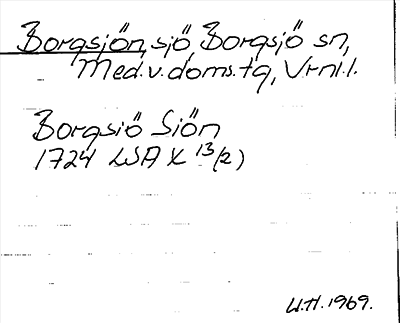 Borgsjön, sjö, Borgsjö sn,
Med.v.doms.tg, Vrnl.l.
Borgsjö Siön
1724 LSA X 13/(2)
U.H. 1969.